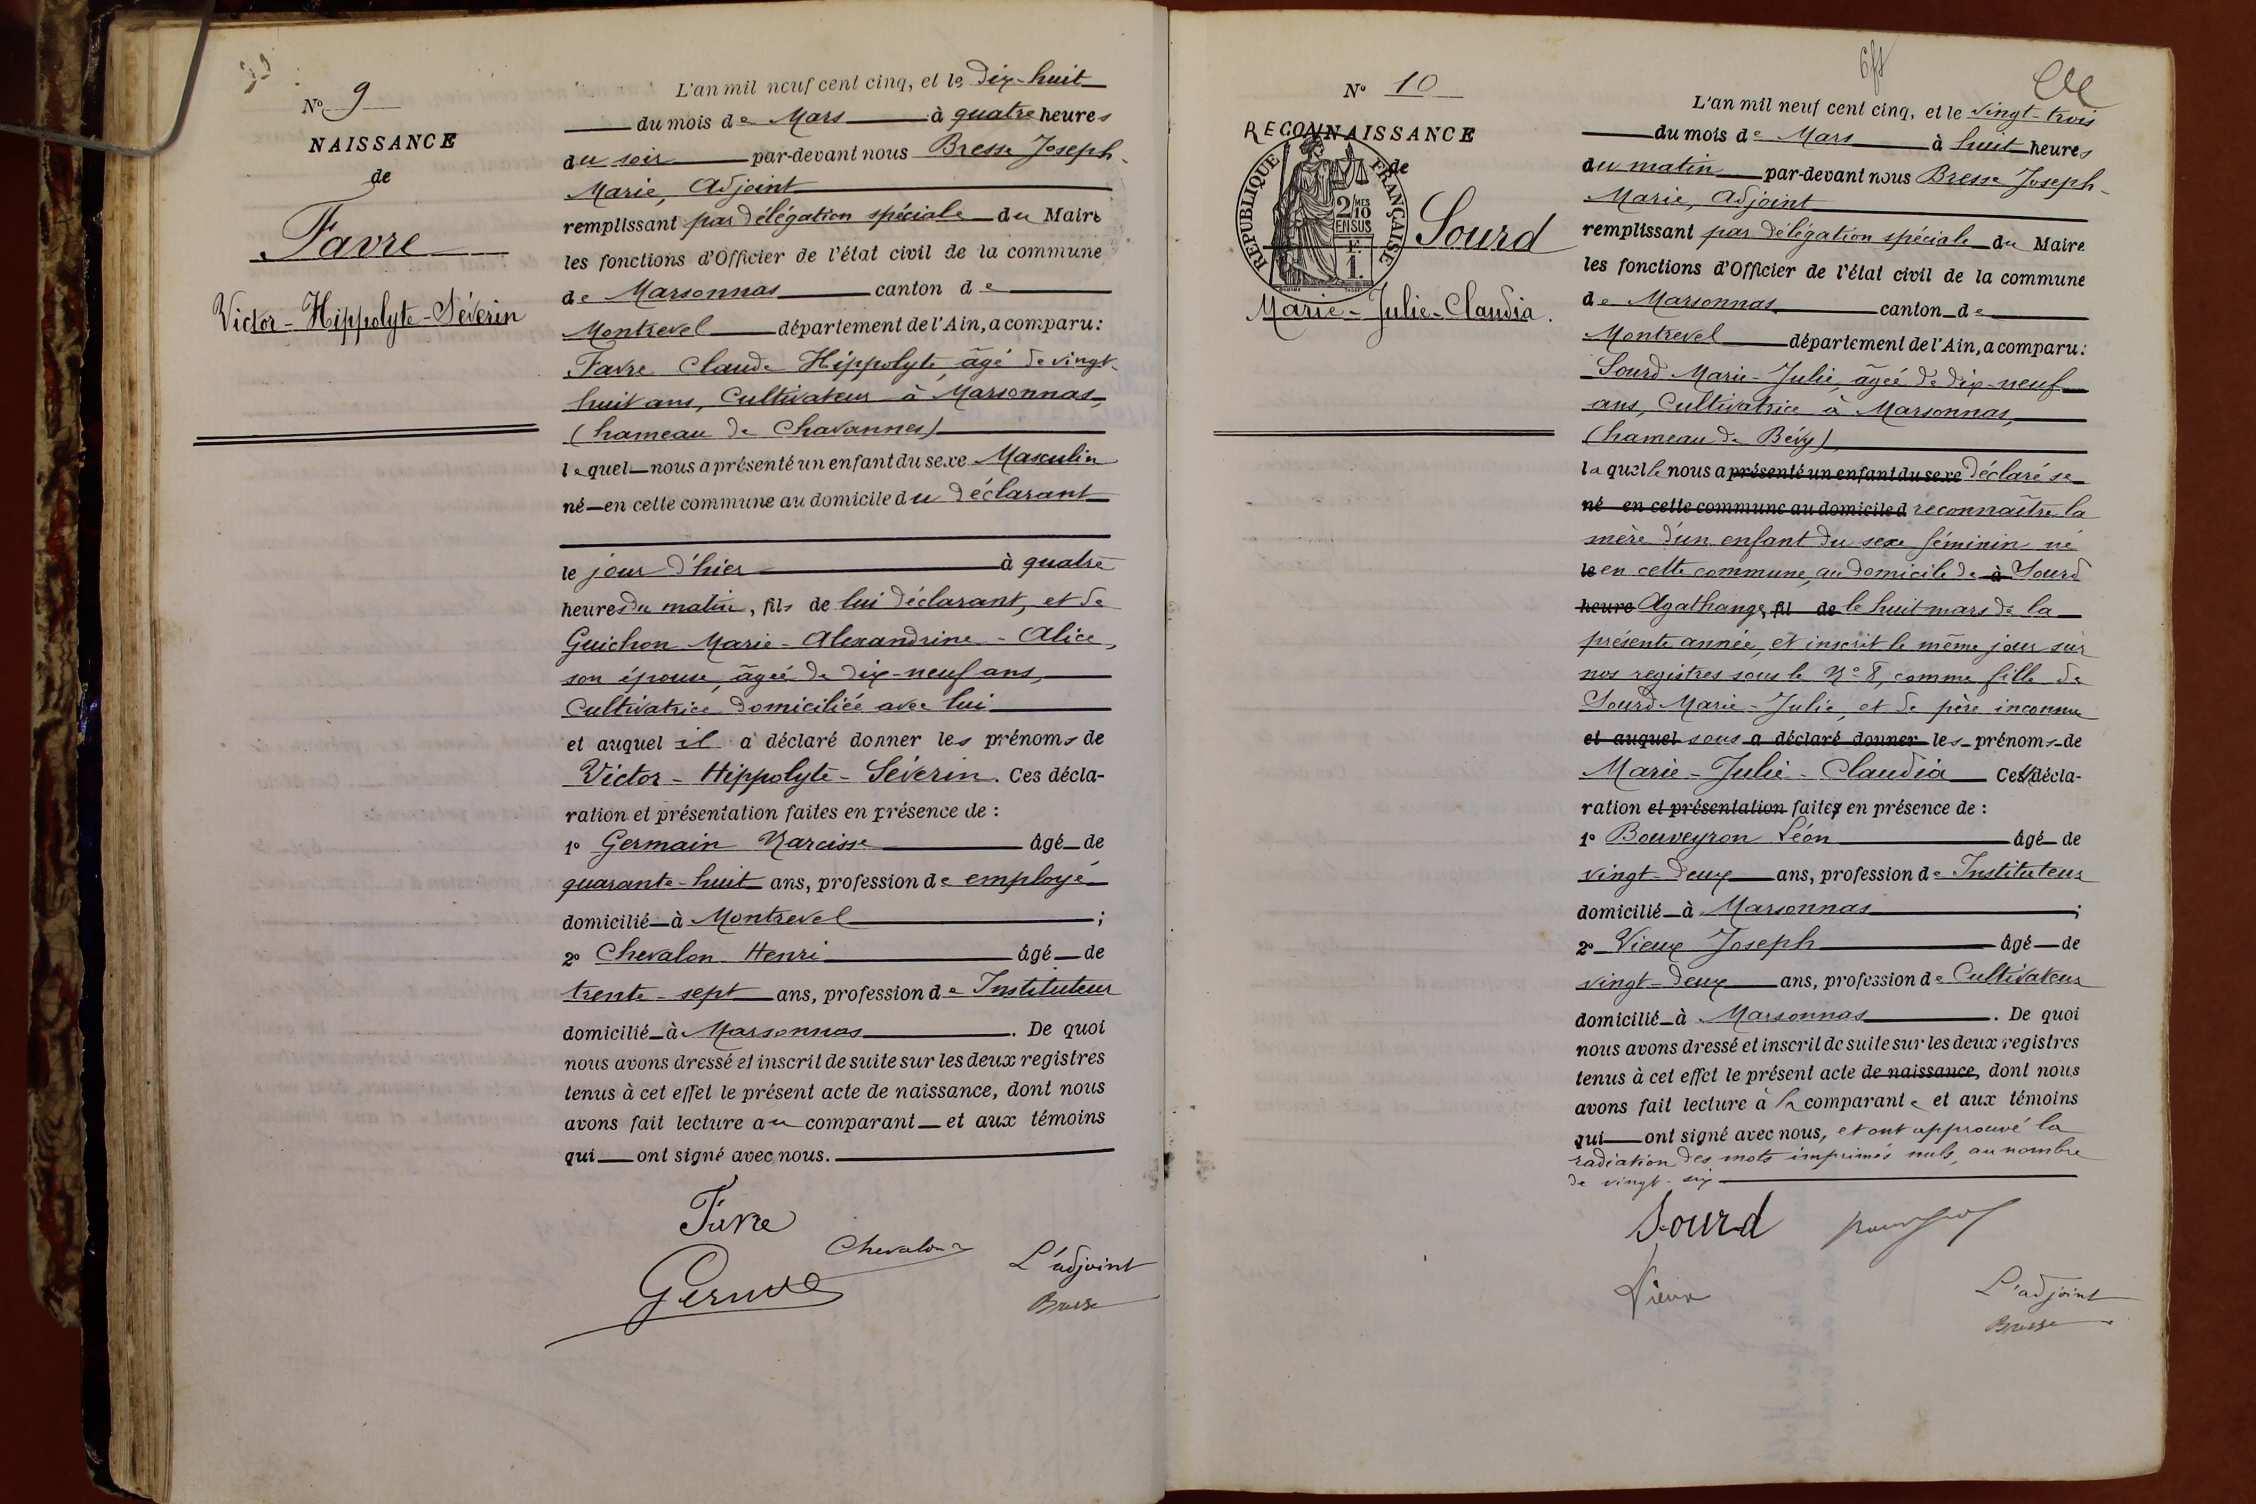 N° 9
NAISSANCE
de
Favre
Victor-Hippolyte-Séverin
L'an mil neuf cent cinq, et le dix-huit
du mois de Mars à quatre heures
du soir par-devant nous Bresse Joseph-
Marie, Adjoint
remplissant par délégation spéciale du Maire
les fonctions d'Officier de l'état civil de la commune
de Marsonnas canton de
Montrevel département de l'Ain, a comparu:
Favre Claude Hippolyte, âgé de vingt-
huit ans, Cultivateur à Marsonnas,
(hameau de Chavannes)
lequel nous a présenté un enfant du sexe Masculin
né en cette commune au domicile du déclarant
le jour d'hier à quatre
heures du matin, fils de lui déclarant, et de
Guichon Marie-Alexandrine-Alice,
son épouse, âgée de dix-neuf ans,
Cultivatrice domiciliée avec lui
et auquel il a déclaré donner les prénoms de
Victor-Hippolyte-Séverin. Ces décla-
ration et présentation faites en présence de :
1° Germain Narcisse âgé de
quarante-huit ans, profession de employé
domicilié à Montrevel ;
2° Chevalon Henri âgé de
trente-sept ans, profession de Instituteur
domicilié à Marsonnas. De quoi
nous avons dressé et inscrit de suite sur les deux registres
tenus à cet effet le présent acte de naissance, dont nous
avons fait lecture au comparant et aux témoins
qui ont signé avec nous.
Favre
Chevalon
L'adjoint
Bresse
N° 10
RECONNAISSANCE
de
REPUBLIQUE FRANÇAISE
2/10MES
EN SUS
F.
1.
Sourd
Marie-Julie-Claudia.
L'an mil neuf cent cinq, et le vingt-trois
du mois de Mars à huit heures
du matin par-devant nous Bresse Joseph-
Marie, Adjoint
remplissant par délégation spéciale du Maire
les fonctions d'Officier de l'état civil de la commune
de Marsonnas canton de
Montrevel département de l'Ain, a comparu:
Sourd Marie-Julie, âgée de dix-neuf
ans, Cultivatrice à Marsonnas,
(hameau de Bévy)
laquelle nous a présenté un enfant du sexe déclaré se
né en cette commune au domicile d reconnaître la
mère d'un enfant du sexe féminin né
le en cette commune, au domicile de à Sourd
heure Agathange, fil de le huit mars de la
présente année, et inscrit le même jour sur
nos registres sous le N° 8, comme fille de
Sourd Marie-Julie, et de père inconnu
et auquel sous a déclaré donner les prénoms de
Marie-Julie-Claudia Cette décla-
ration et présentation faites en présence de :
1° Bouveyron Léon âgé de
vingt-deux ans, profession de Instituteur
domicilié à Marsonnas ;
2° Vieux Joseph âgé de
vingt-deux ans, profession de Cultivateur
domicilié à Marsonnas. De quoi
nous avons dressé et inscrit de suite sur les deux registres
tenus à cet effet le présent acte de naissance, dont nous
avons fait lecture à la comparante et aux témoins
qui ont signé avec nous, et ont approuvé la
radiation des mots imprimés nuls, au nombre
de vingt-six
Sourd
Vieux
L'adjoint
Bresse